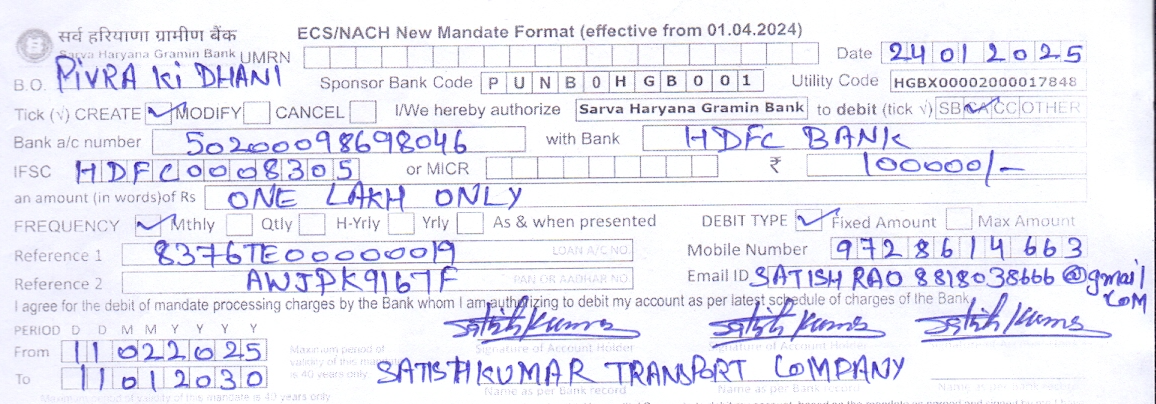 सर्व हरियाणा ग्रामीण बैंक ECS/NACH New Mandate Format (effective from 01.04.2024)
Sarva Haryana Gramin Bank UMRN Date 24012025
B.O. PIVRA KI DHANI Sponsor Bank Code PUNB0HGB001 Utility Code HGBX00002000017848
Tick (√) CREATE ✓ MODIFY CANCEL I/We hereby authorize Sarva Haryana Gramin Bank to debit (tick √) SB CA ✓ CC OTHER
Bank a/c number 50200098698046 with Bank HDFC BANK
IFSC HDFC0008305 or MICR ₹ 100000/-
an amount (in words)of Rs ONE LAKH ONLY
FREQUENCY ✓ Mthly Qtly H-Yrly Yrly As & when presented DEBIT TYPE ✓ Fixed Amount Max Amount
Reference 1 8376TE00000019 LOAN A/C NO. Mobile Number 9728614663
Reference 2 AWJPK9167F PAN OR AADHAR NO. Email ID SATISH RAO 8818038666 @gmail
COM
I agree for the debit of mandate processing charges by the Bank whom I am authorizing to debit my account as per latest schedule of charges of the Bank
Satish Kumar Satish Kumar Satish Kumar
PERIOD D D M M Y Y Y Y
From 11022025 Maximum period of validity of this mandate is 40 years only Signature of Account Holder Signature of Account Holder
To 11012030 SATISH KUMAR TRANSPORT COMPANY
Maximum period of validity of this mandate is 40 years only Name as per bank record Name as per Bank record Name as per bank record